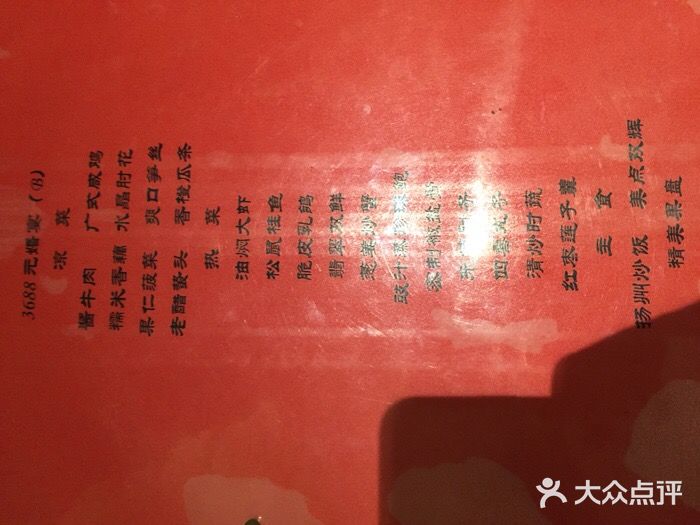 3688元婚宴（B）
凉菜
酱牛肉 广式咸鸡
糯米香藕 水晶肘花
果仁菠菜 爽口笋丝
老醋蜇头 香橙瓜条
热菜
油焖大虾
松鼠桂鱼
脆皮乳鸽
翡翠双鲜
蓬莱炒蟹
豉汁
四喜丸子
清炒时蔬
红枣莲子羹
主食
扬州炒饭 美点双辉
精美果盘
大众点评